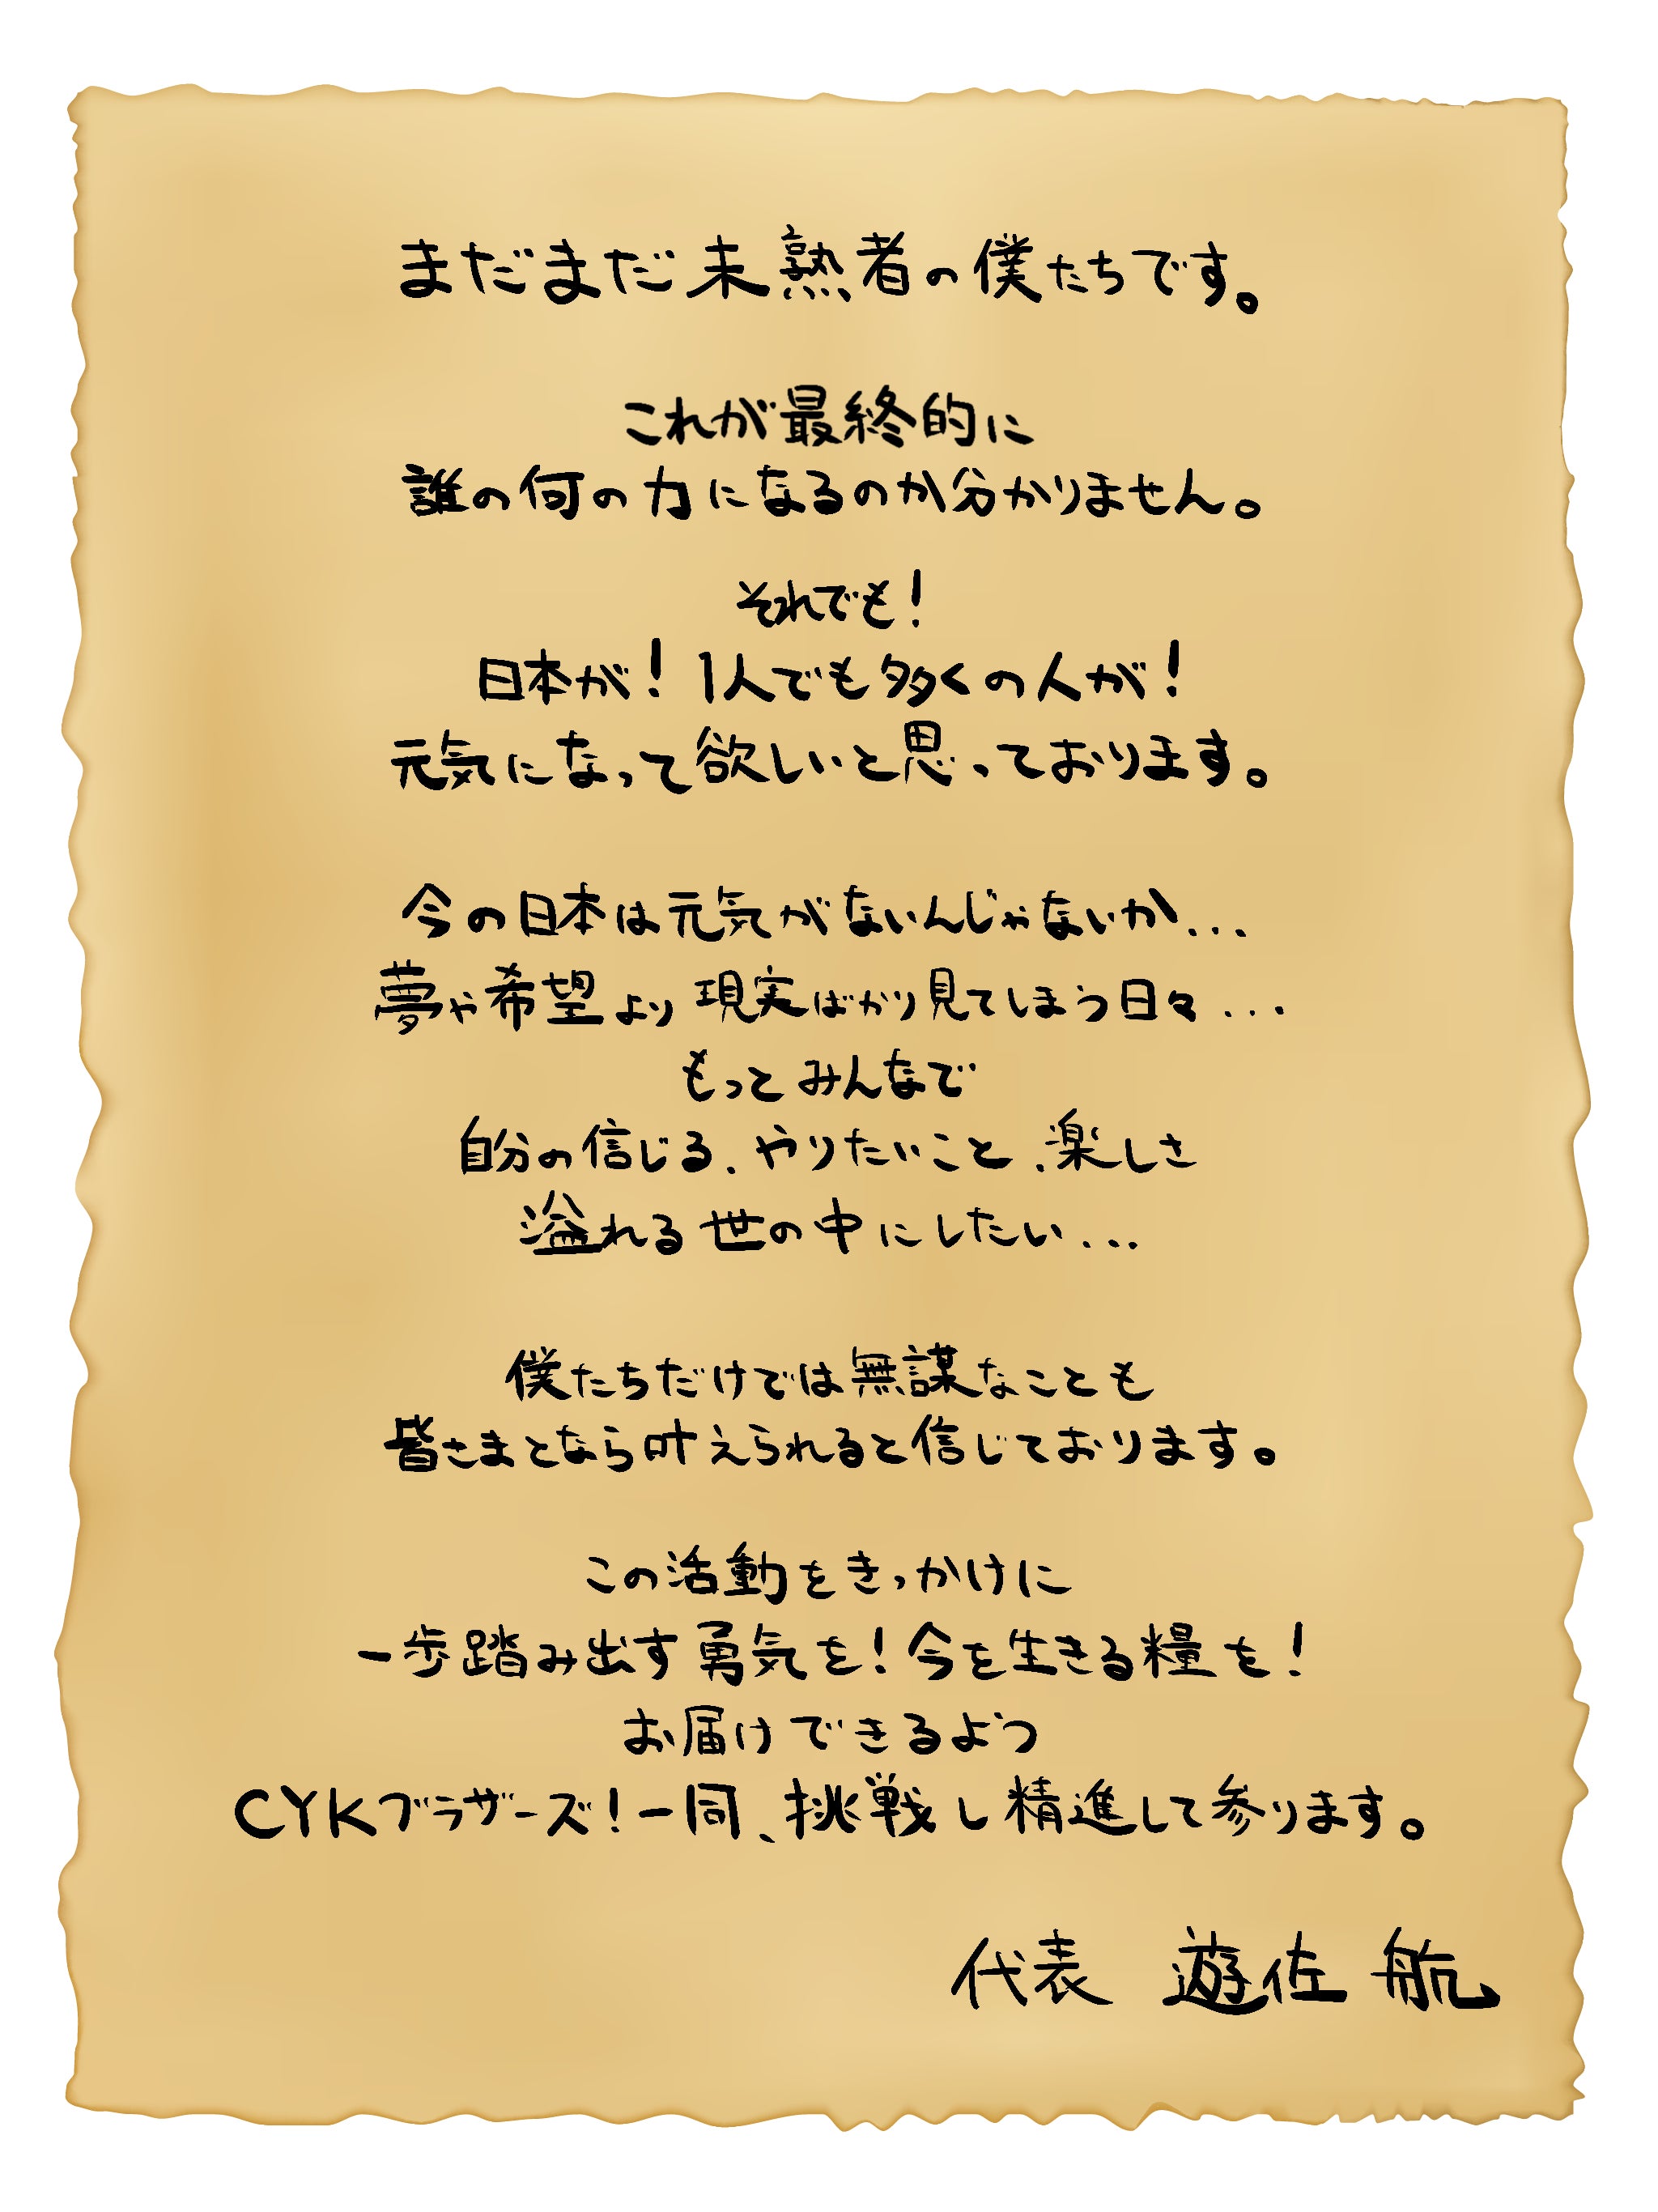 まだまだ未熟者の僕たちです。
これが最終的に
誰の何の力になるのか分かりません。
それでも!
日本が!1人でも多くの人が!
元気になって欲しいと思っております。
今の日本は元気がないんじゃないか...
夢や希望より現実ばかり見てしまう日々...
もっとみんなで
自分の信じる、やりたいこと、楽しさ
溢れる世の中にしたい...
僕たちだけでは無謀なことも
皆さまとなら叶えられると信じております。
この活動をきっかけに
一歩踏み出す勇気を!今を生きる糧を!
お届けできるよう
CYKブラザーズ!一同、挑戦し精進して参ります。
代表 遊佐 航